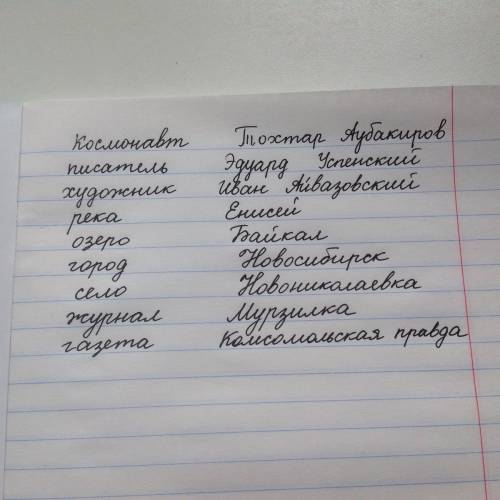 Космонавт Тохтар Аубакиров
писатель Эдуард Успенский
художник Иван Айвазовский
река Енисей
озеро Байкал
город Новосибирск
село Новоникалаевка
журнал Мурзилка
газета Комсомольская правда